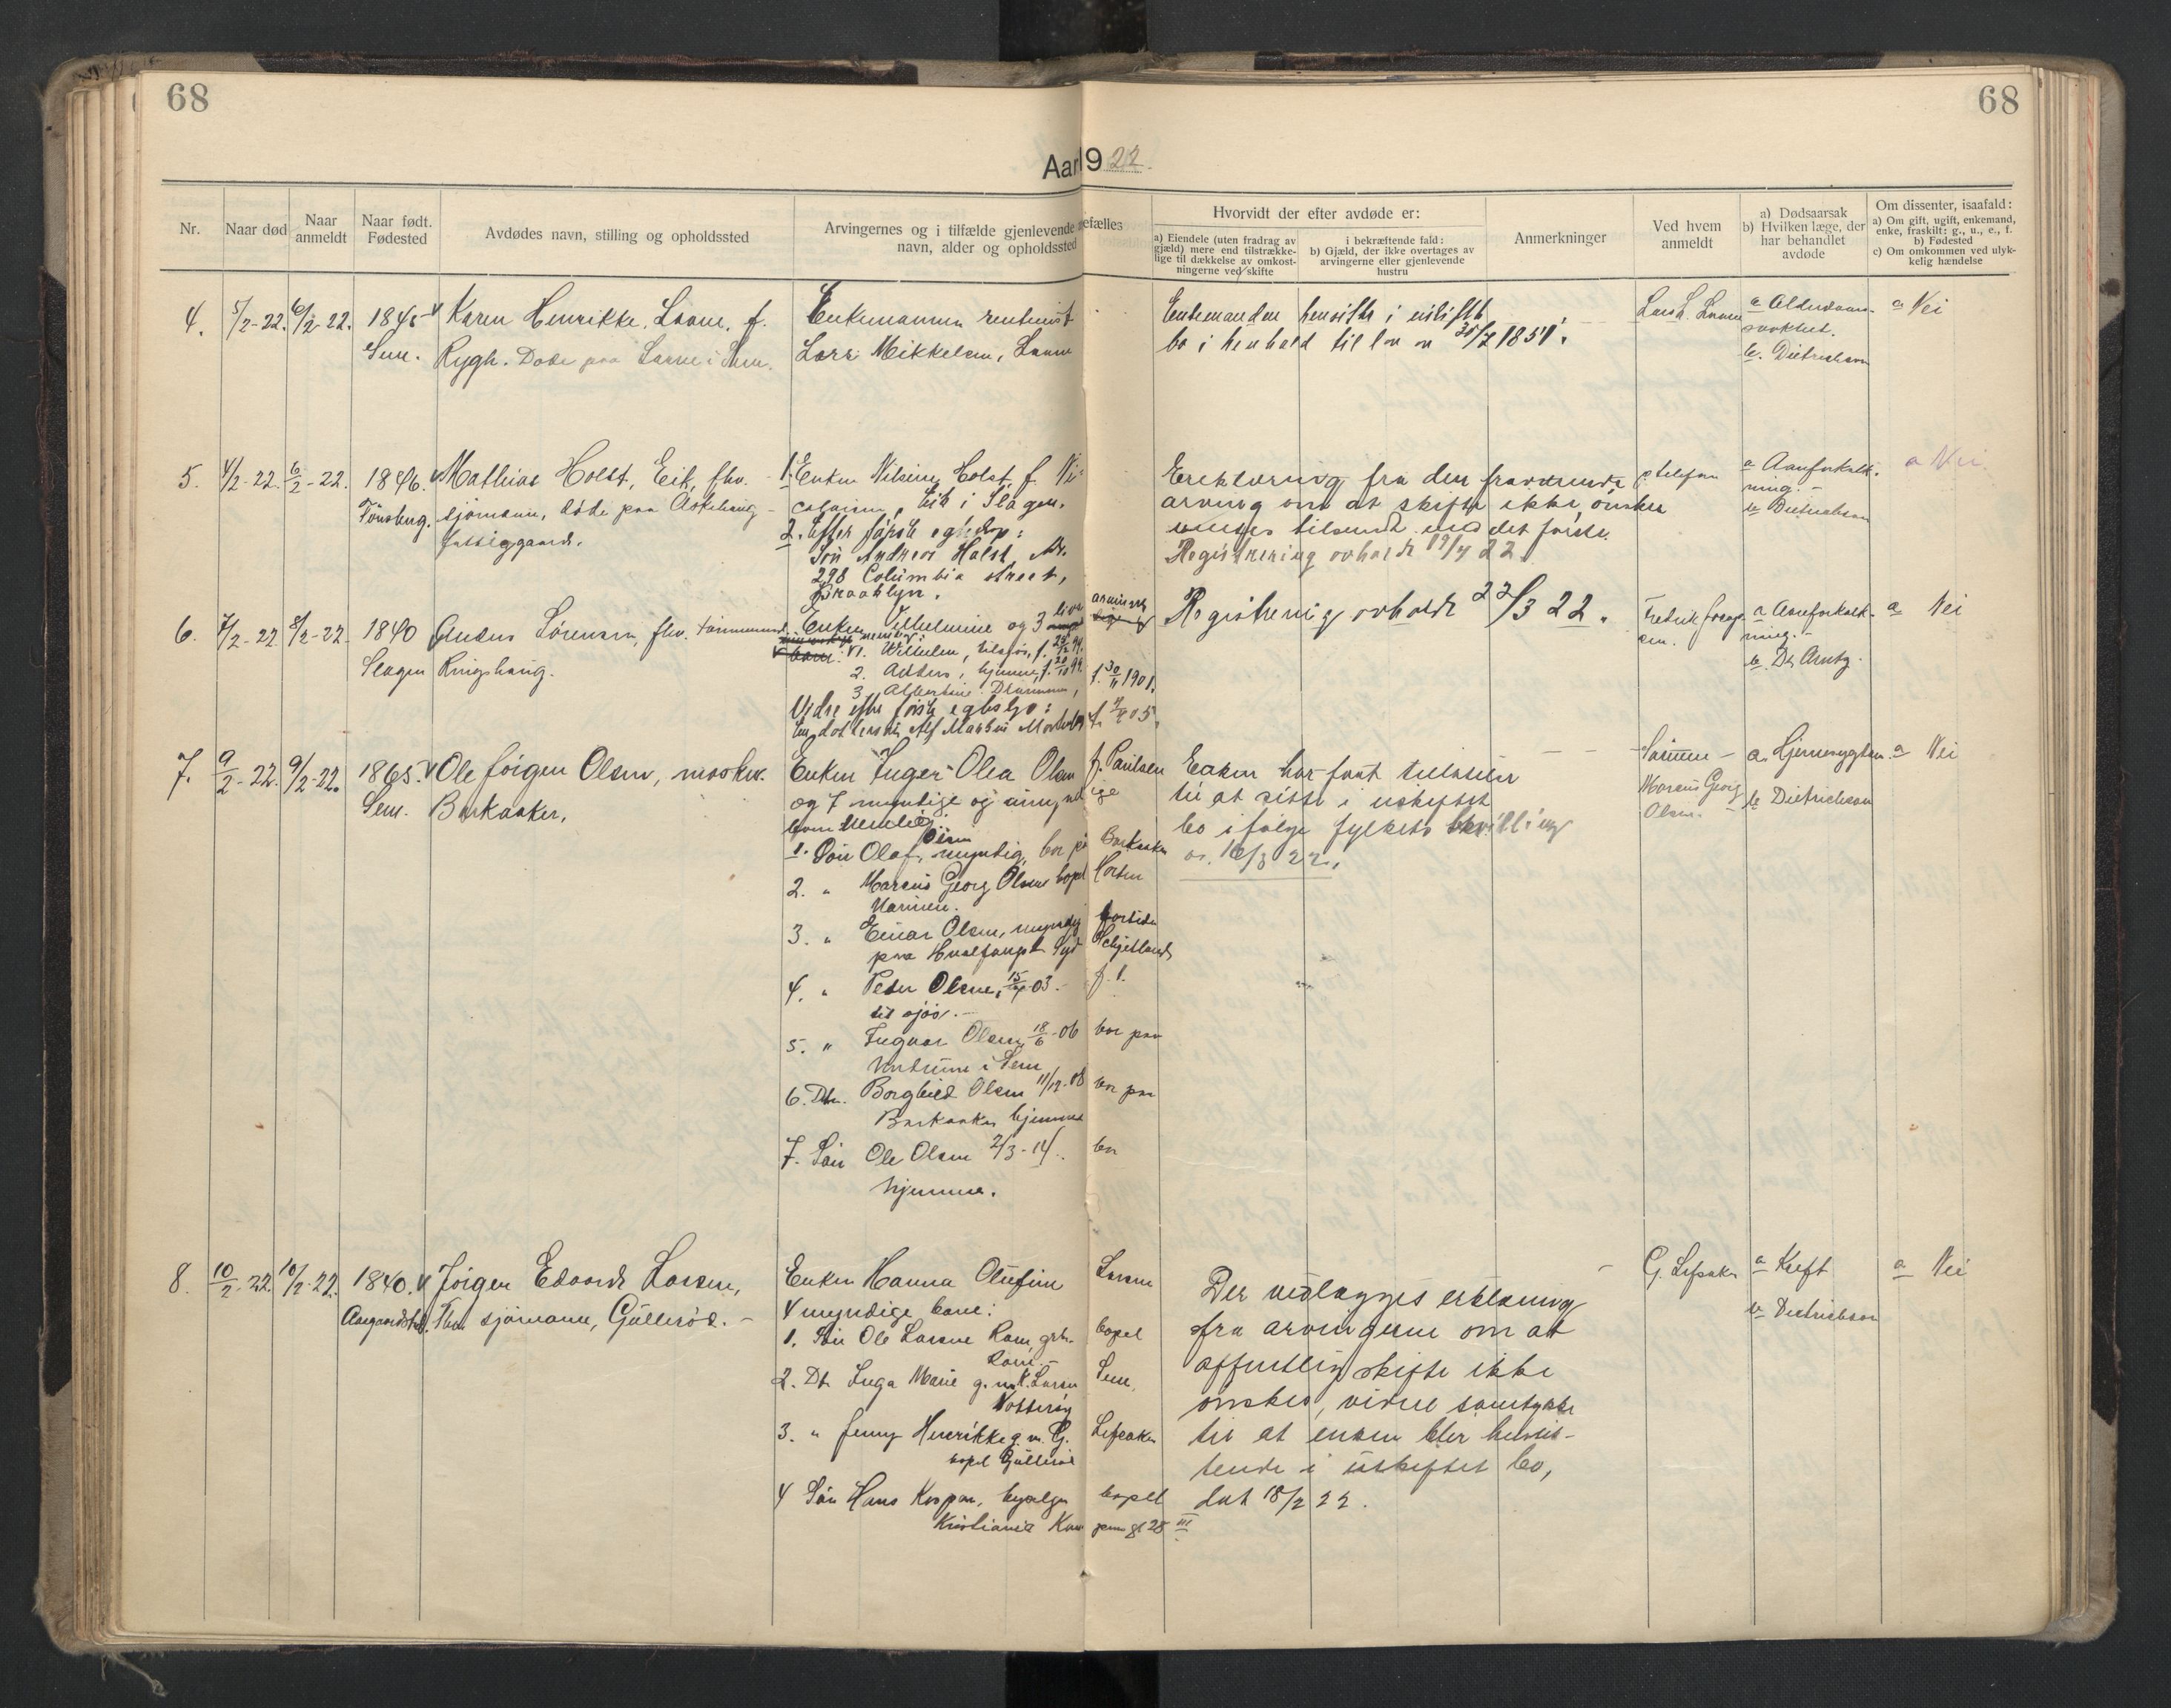 68
68
Aar 1922
Nr.
Naar død
Naar anmeldt
Naar født. Fødested
Avdødes navn, stilling og opholdssted
Arvingernes og i tilfælde gjenlevende
navn, alder og opholdssted
Hvorvidt der efter avdøde er:
a) Eiendele (uten fradrag av gjæld) mere end tilstrække-lige til dækkelse av omkost-ningerne ved skifte
i bekræftende fald:
b) Gjæld, der ikke overtages av arvingerne eller gjenlevende hustru
Anmerkninger
Ved hvem anmeldt
a) Dødsaarsak
b) Hvilken læge, der har behandlet avdøde
Om dissenter, isaafald:
a) Om gift, ugift, enkemand, enke, fraskilt: g., u., e., f.
b) Fødested
c) Om omkommen ved ulyk-kelig hændelse
4. 5/2-22. 6/2-22.
Sem.
Karen Henrikke
Rygh. Døde paa i Sem.
Enkemannen rentenist
Lars Mikkelsen,
Enkemanden i uskiftet
bo i henhold til lov av 30/7 1851.
a
b. Dietrichson
a Nei
5. 4/2-22. 6/2-22. 1846.
Tønsberg.
Mathias Holst, Eik, fhv.
sjømann, døde paa Askehaug
fattiggaard.
1. Enken Nilsine Holst, f. Ni-
colaisen, Eik i Slagen.
2. Efter første egteskap:
Søn Andreas Holst, Nr.
298 Columbia street,
Brooklyn.
Erklæring fra den fraværende
arving om at skifte ikke ønskes
tilsendt med det første.
Registrering avholdt 19/4 22.
p telefon
a Aareforkalk-
ning.
b Dietrichson
a Nei
6. 7/2-22 8/2-22. 1840
Slagen
Anders Sørensen, fhv. tømmermand
Ringshaug.
Enken Vilhelmine og 3 livs
arvinger
1. Wilhelm, tilsjøs, f.
2. Anders, hjemme, f.
3. Albertine Drammen, f. 30/11 1901.
Videre efter første egteskap:
Registrering avholdt 22/3 22.
Fredrik
a Aareforkalk-
ning.
b. Dr Arntz.
a Nei
7. 9/2-22. 9/2-22. 1865.
Sem.
Ole Jørgen Olsen, maskin.
Barkaaker.
Enken Inger Olea Olsen f. Paulsen
og 7 myndige og umyndige
barn nemlig:
1. Søn Olaf Olsen myndig, bor på Barkaaker
2. " Marcus Georg Olsen bopel Horten
Marinen.
3. " Einar Olsen, myndig fortiden
paa Hvalfangst Syd Schjetland
4. " Peder Olsen, 03. f. 1.
til sjøs.
5. " Ingvar Olsen 18/6-06 bor paa
i Sem
6. Dtr. Borghild Olsen 11/12-08 bor paa
Barkaaker hjemme
7. Søn Ole Olsen 2/3-14. bor
hjemme.
Enken har faat tilladelse
til at sitte i uskiftet
bo ifølge fylkets bevilling
av. 16/3 22.
Sønnen
Marcus Georg
Olsen.
a. Hjernesygdom
b Dietrichson
a Nei
8. 10/2-22. 10/2-22. 1840.
Jørgen Edvard Larsen,
sjømann, Gullerød.
Enken Hanna Olufine Larsen
4 myndige barn:
1. Søn Ole Larsen Ram, grdr. bopel
2. Dtr Inga Marie g. m. K. Larsen Sem,
Nøtterøy
3. " Jenny Henrikke g. m. G. Lefsaker
bopel Gullerød
4 Søn Hans Kaspar, bopel
Kristiania
Der vedlægges erklæring
fra arvingerne om at
offentlig skifte ikke
ønskes, videre samtykke
til at enken blir hensit-
tende i uskiftet bo,
dat 18/2 22.
G. Lefsaker
a Kreft
b Dietrichson
a Nei